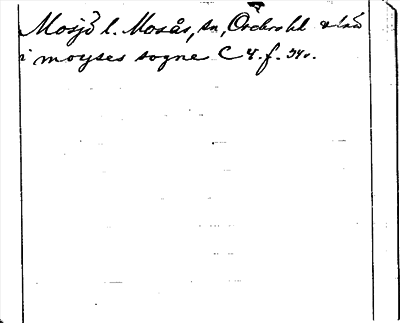 Mosjö l. Mosås, sn, Örebro hd
i moyses sogne C 4. f. 34v.